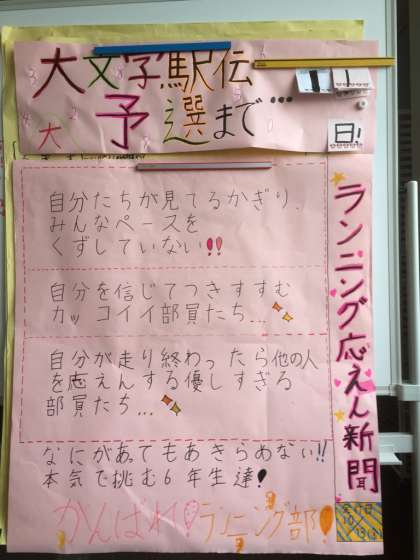 大文字駅伝
予選まで…
日!
大
ランニング応えん新聞
自分たちが見てるかぎり、
みんなペースを
くずしていない!!
自分を信じてつきすすむ
カッコイイ部員たち…
自分が走り終わったら他の人
を応えんする優しすぎる
部員たち…
なにがあってもあきらめない!!
本気で挑む6年生達!
がんばれ!ランニング部!
発行日